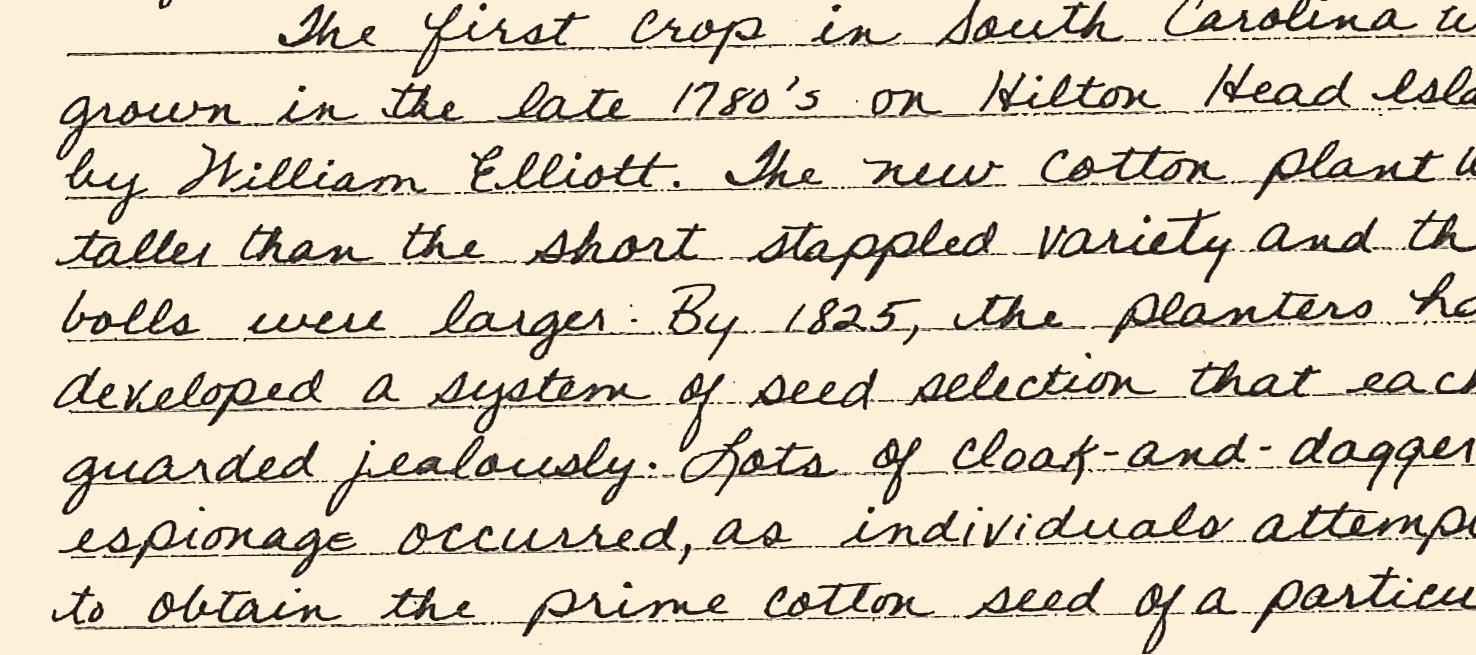 The first crop in South Carolina
grown in the late 1780's on Hilton Head
by William Elliott. The new cotton plant
taller than the short stappled variety and
bolls were larger. By 1825, the planters
developed a system of seed selection that
guarded jealously. Lots of cloak-and-dagger
espionage occurred, as individuals
to obtain the prime cotton seed of a